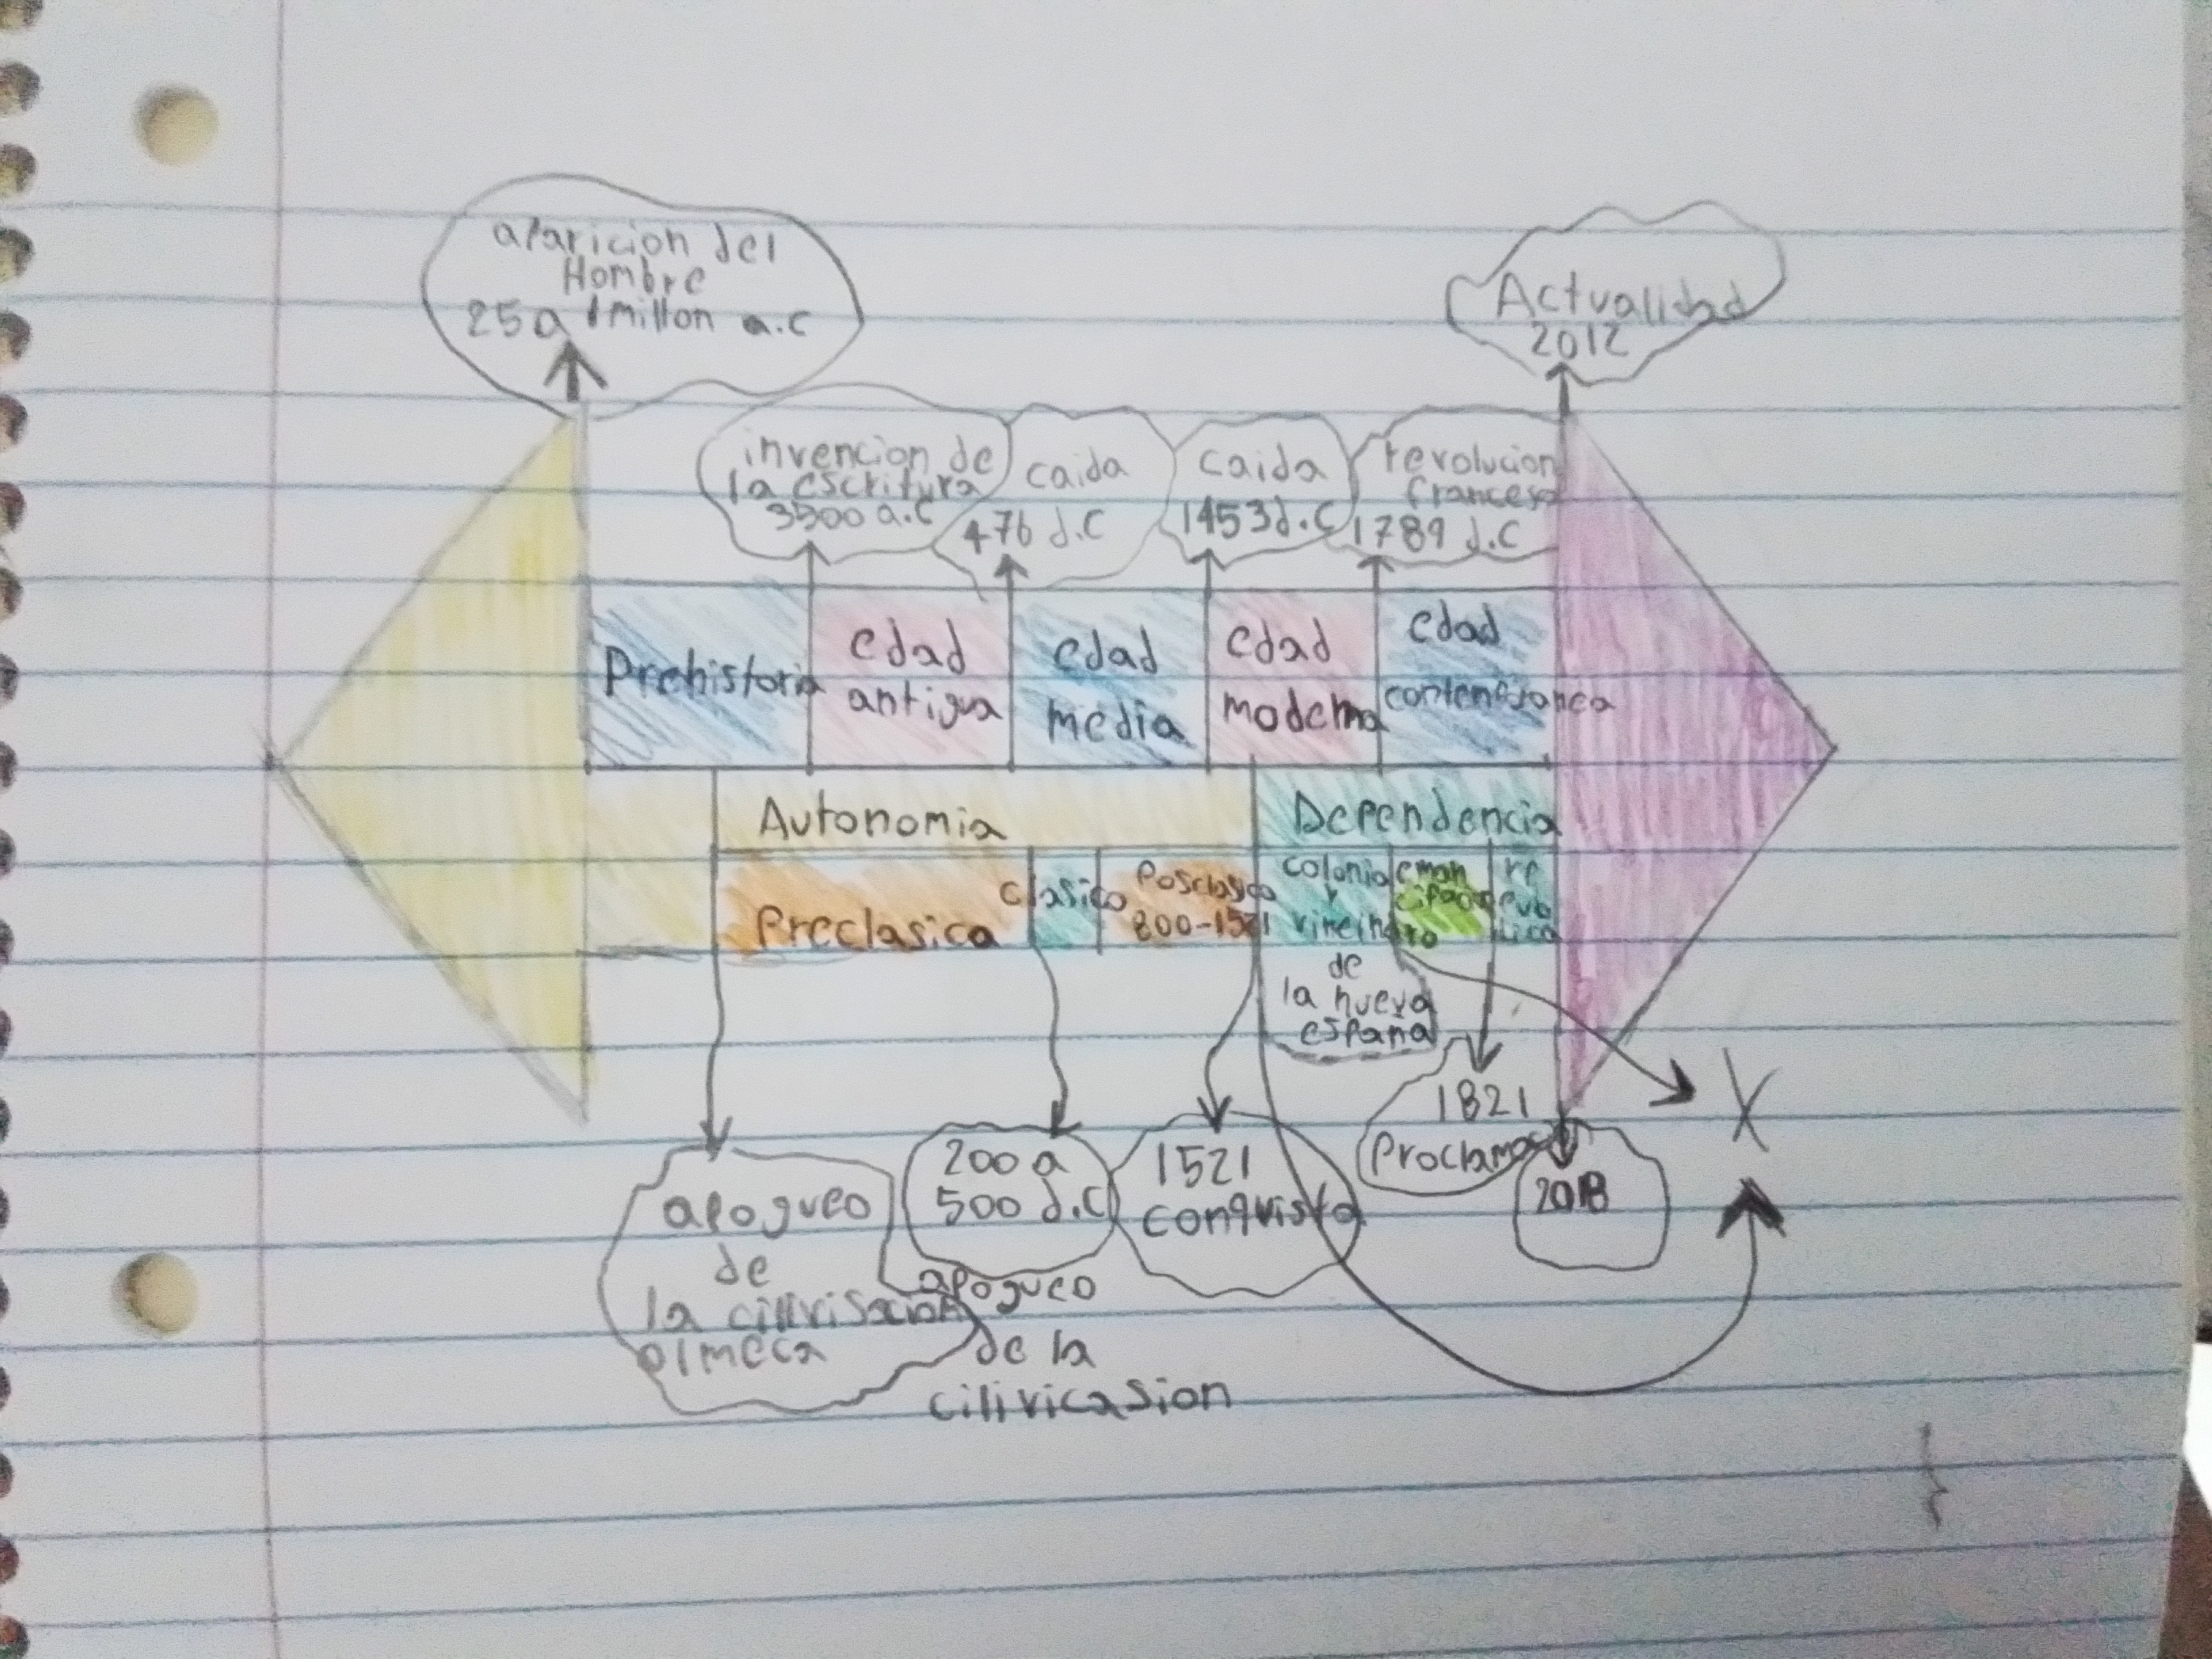 aparicion del
Hombre
25a 1millon a.c
Actualidad
2012
invencion de
la escritura
3500 a.c
caida
476 d.c
caida
1453d.c
revolucion
francesa
1789 d.c
Prehistoria
edad
antigua
edad
media
edad
moderna
edad
Autonomia
Dependencia
Preclasica
clasico
Posclasico
800-1521
colonia
y
de
la nueva
españa
re
pub
lica
1821
Proclamas
2018
X
apogueo
de
olmeca
200 a
500 d.c
apogueo
de la
cilivicasion
1521
conquista